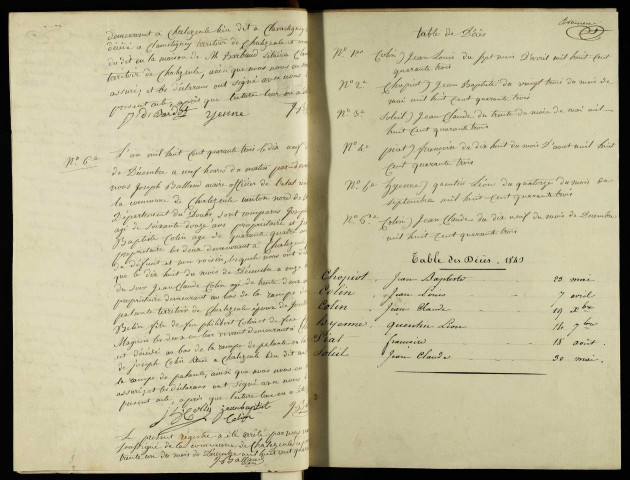 demeurant à Chalezeule lieu dit à
territoire de Chalezeule
dudit en la maison de
territoire de Chalezeule, ainsi que nous nous
assuré, et les déclarans ont signé avec nous
présent acte, après que lecture leur en a
Yenne
N° 6e
L'an mil huit cent quarante trois le dix neuf
de Décembre à neuf heures du matin par devant
nous Joseph Ballond maire officier de l'état
la commune de Chalezeule canton nord de
Département du Doubs, sont comparus Joseph
âgé de soixante douze ans propriétaire et
Baptiste Colin âgé de quarante quatre ans
propriétaire les deux demeurant à Chalezeule
du défunt et son voisin, lesquels nous ont
que le dix huit du mois de Décembre à onze
du soir Jean Claude Colin âgé de trente deux ans
propriétaire demeurant au bas de la rampe de
palante territoire de Chalezeule époux de
fils de feu philibert Colin et de feu
les deux en leur vivant demeurant à
est décédé au bas de la rampe de palante en la
de Joseph Colin à Chalezeule lieu dit
la rampe de palante, ainsi que nous nous en
assuré, et les déclarans ont signé avec nous
présent acte, après que lecture leur en a
J Colin jean baptiste
Colin
Le présent registre a été arrêté par nous
soussigné de la commune de Chalezeule
trente un du mois de Décembre mil huit cent
J Ballond
Table de Décès
N° 1er Colin) Jean Louis du sept mois d'avril mil huit cent
quarante trois
N° 2e Chopiot) Jean Baptiste du vingt trois du mois de
mai mil huit cent quarante trois
N° 3e Soleil) Jean Claude du trente du mois de mai mil
huit cent quarante trois
N° 4e piat) françois du dix huit du mois d'aout mil huit
cent quarante trois
N° 5e quentin Léon du quatorze du mois de
septembre mil huit cent quarante trois
N° 6e Colin) Jean Claude du dix neuf du mois de Décembre
mil huit cent quarante trois
Table des Décès. 1843
Chopiot. Jean Baptiste 23 mai
Colin. Jean Louis 7 avril
Colin. Jean Claude 19 Xbre
quentin Léon 14 7bre
Piat. françois 18 août.
Soleil. Jean Claude 30 mai.